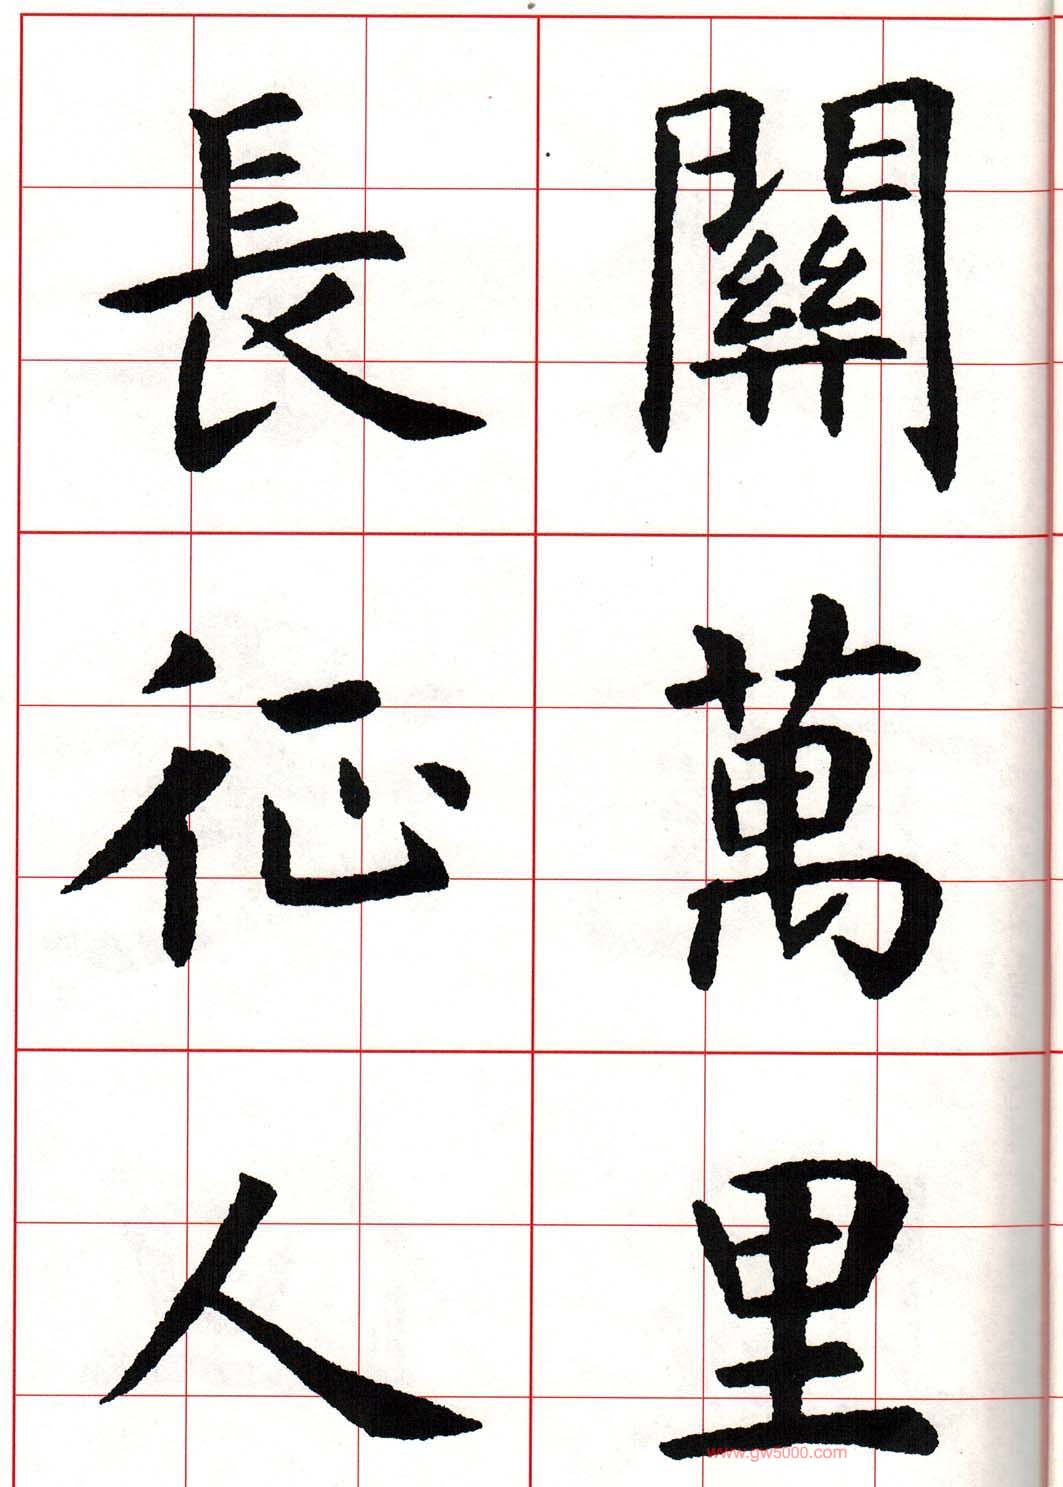 關萬里
長征人
www.gw5000.com